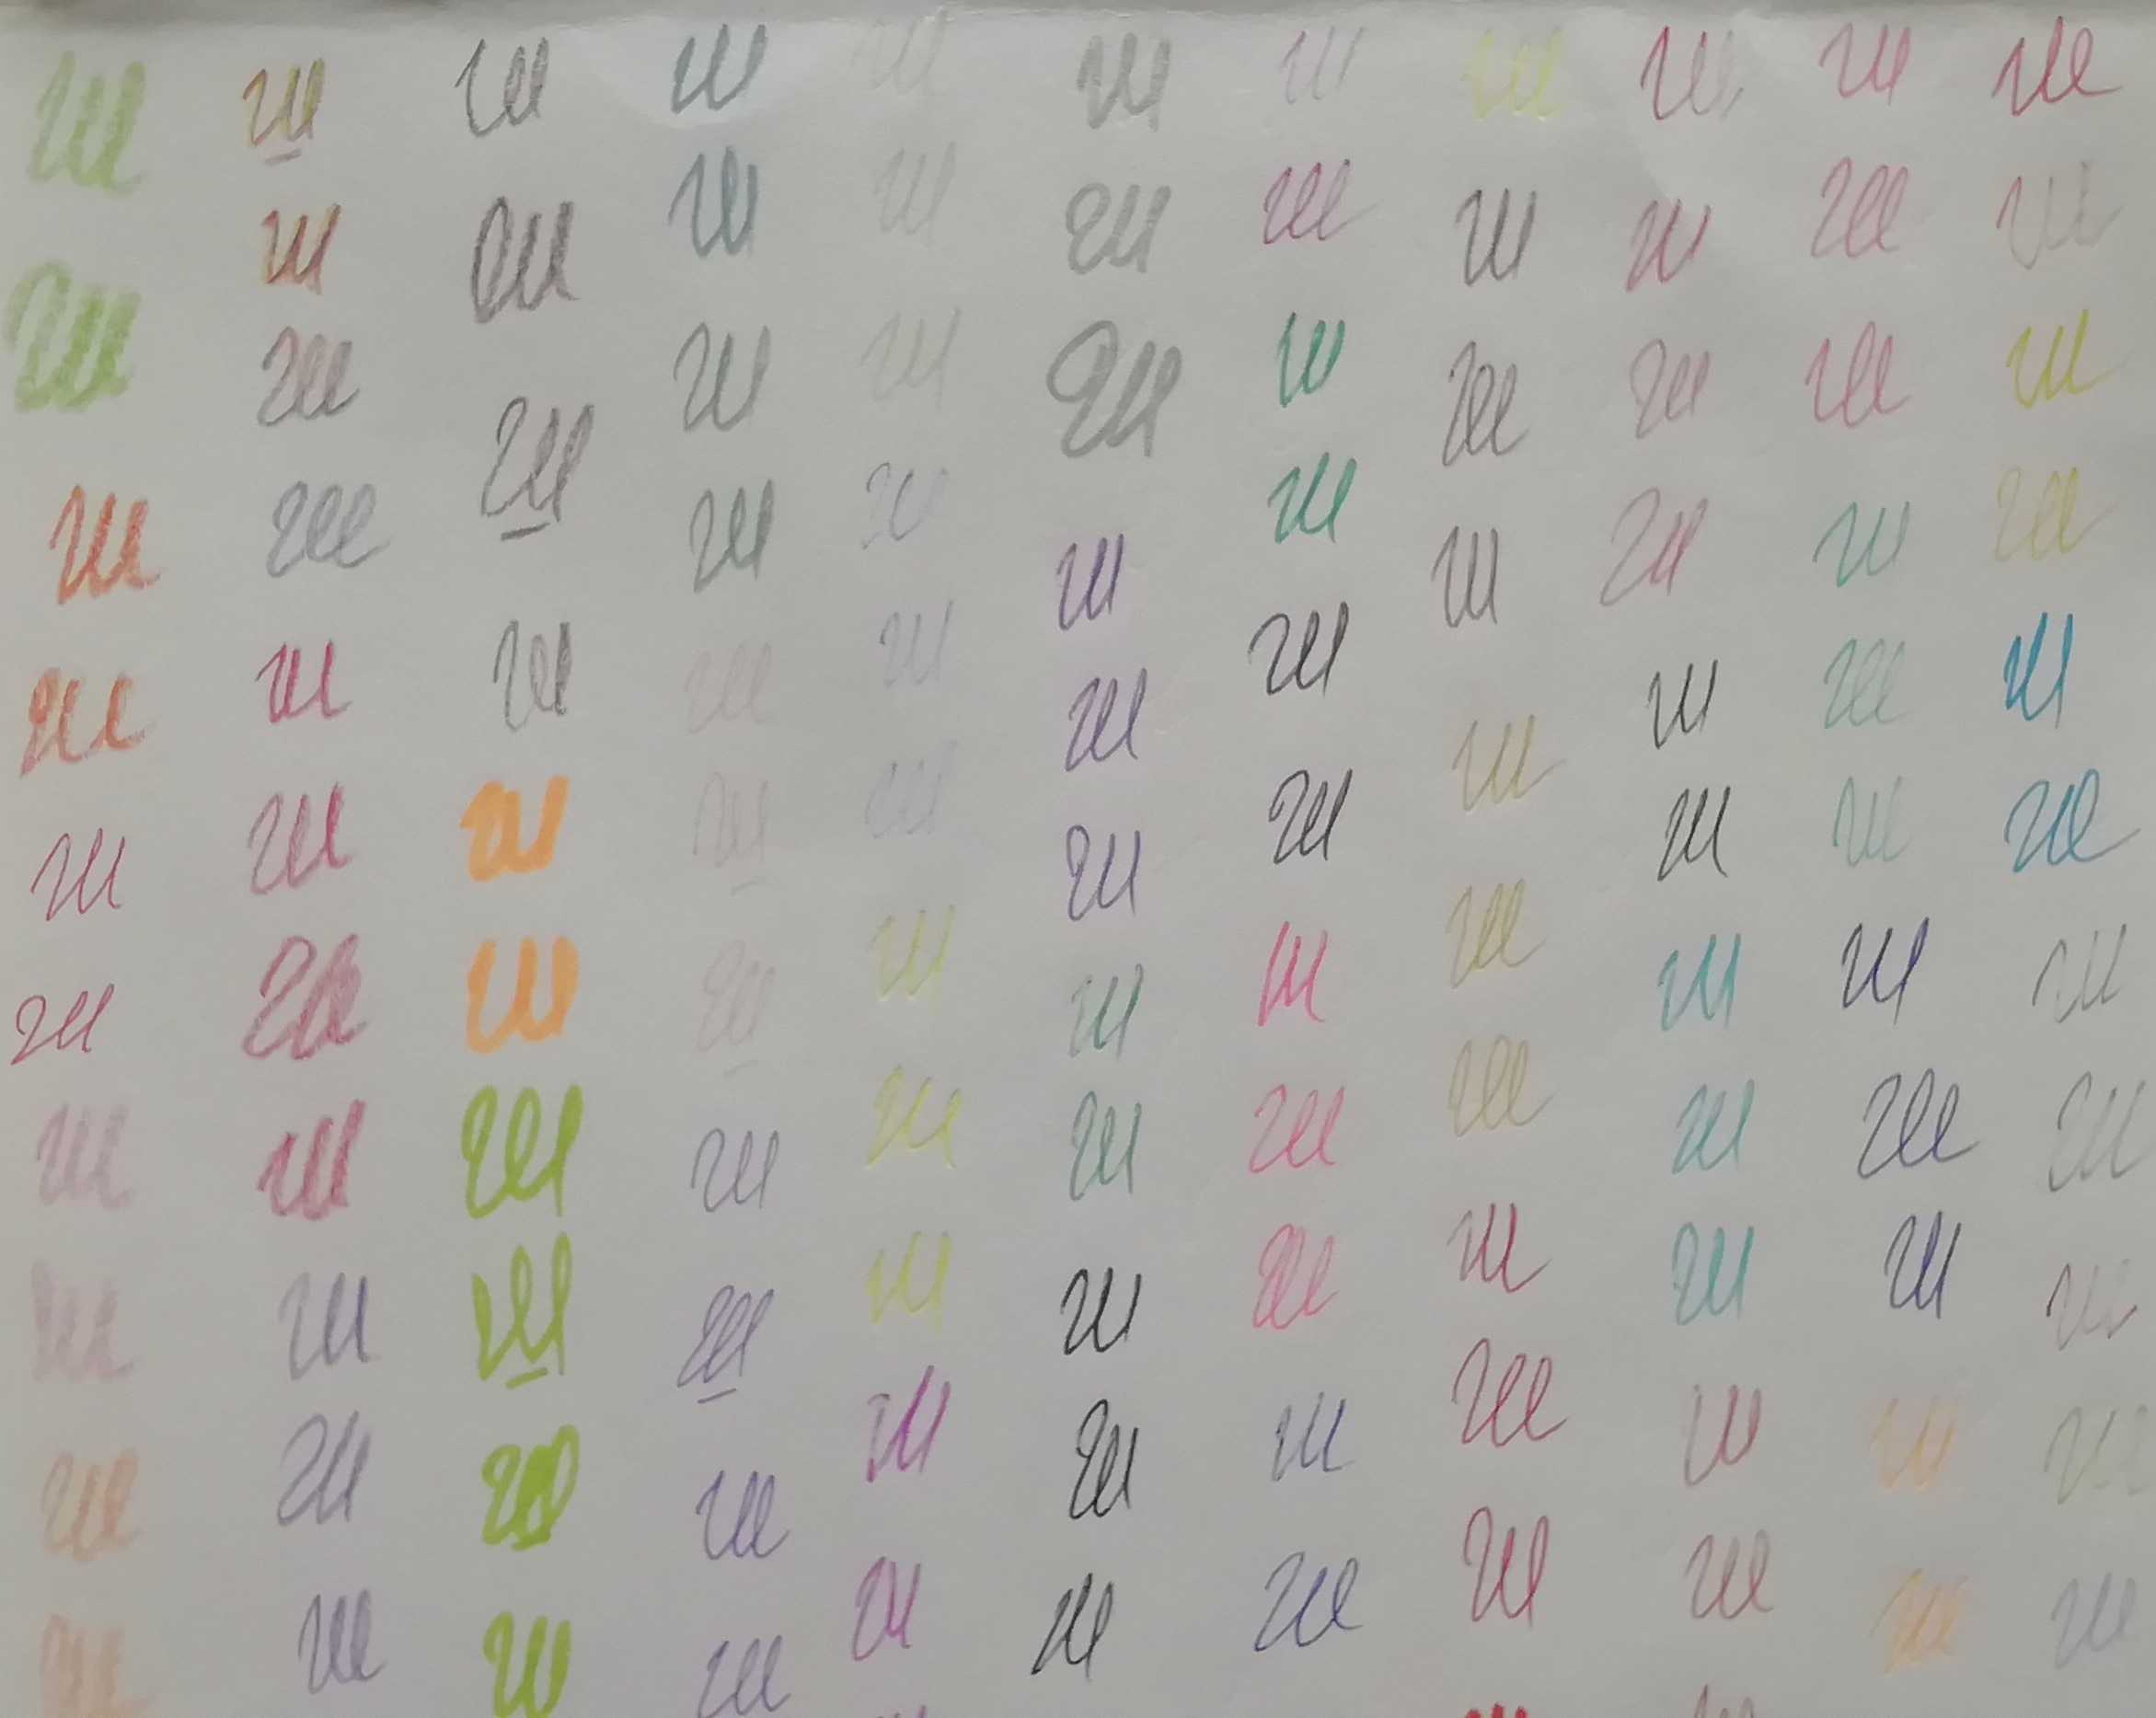 ш ш ш ш ш ш ш ш ш ш ш
ш ш ш ш ш ш ш ш ш ш ш
ш ш ш ш ш ш ш ш ш ш ш
ш ш ш ш ш ш ш ш ш ш ш
ш ш ш ш ш ш ш ш ш ш ш
ш ш ш ш ш ш ш ш ш ш ш
ш ш ш ш ш ш ш ш ш ш ш
ш ш ш ш ш ш ш ш ш ш ш
ш ш ш ш ш ш ш ш ш ш ш
ш ш ш ш ш ш ш ш ш ш ш
ш ш ш ш ш ш ш ш